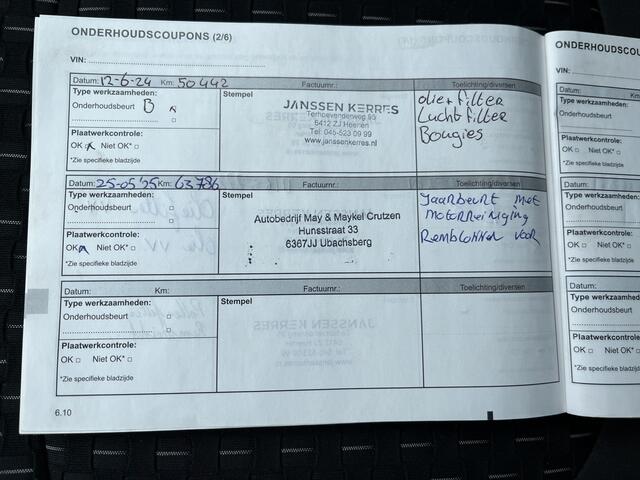 ONDERHOUDSCOUPONS (2/6)
VIN:
Datum: 12-6-24 Km: 50442 Factuurnr.: Toelichting/diversen
Type werkzaamheden: Stempel
Onderhoudsbeurt B
JANSSEN KERRES
Terhoevenderweg 93
6412 ZJ Heerlen
Tel: 045-523 09 99
www.janssenkerres.nl
olie + filter
Luchtfilter
Bougies
Plaatwerkcontrole:
OK x Niet OK*
*Zie specifieke bladzijde
Datum: 25-05'25 Km: 63786 Factuurnr.: Toelichting/diversen
Type werkzaamheden: Stempel
Onderhoudsbeurt
Autobedrijf May & Maykel Crutzen
Hunsstraat 33
6367JJ Ubachsberg
Jaarbeurt met
motorreiniging
Remblokken voor
Plaatwerkcontrole:
OK Niet OK*
*Zie specifieke bladzijde
Datum: Km: Factuurnr.: Toelichting/diversen
Type werkzaamheden: Stempel
Onderhoudsbeurt
JANSSEN KERRES
Plaatwerkcontrole:
OK Niet OK*
*Zie specifieke bladzijde
6.10
ONDERHOUDSCOU
VIN:
Datum:
Type werkzaamheden:
Onderhoudsbeurt
Plaatwerkcontrole:
OK Niet OK*
*Zie specifieke bladzij
Datum:
Type werkzaamhede
Onderhoudsbeurt
Plaatwerkcontrole:
OK Niet OK*
*Zie specifieke bladzij
Datum:
Type werkzaamhed
Onderhoudsbeurt
Plaatwerkcontrole
OK Niet OK
*Zie specifieke bladz